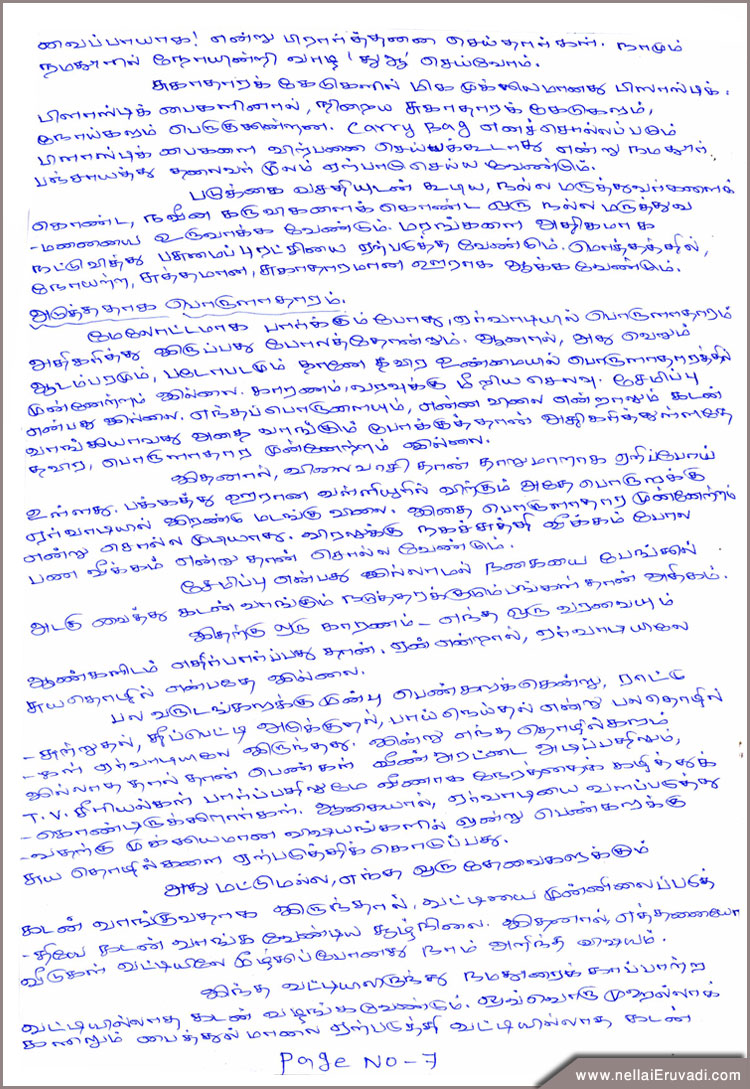 வைப்பாயாக! என்று பிரார்த்தனை செய்தார்கள். நாமும்
நமதூரில் நோயின்றி வாழ 'துஆ' செய்வோம்.
சுகாதாரக் கேடுகளில் மிக முக்கியமானது பிளாஸ்டிக்.
பிளாஸ்டிக் பைகளினால், நிறைய சுகாதாரக் கேடுகளும்,
நோய்களும் பெருகுகின்றன. Carry Bag எனச்சொல்லப்படும்
பிளாஸ்டிக் பைகளை விற்பனை செய்யக்கூடாது என்று நமதூர்
பஞ்சாயத்து தலைவர் மூலம் ஏற்பாடு செய்ய வேண்டும்.
படுக்கை வசதியுடன் கூடிய, நல்ல மருத்துவர்களைக்
கொண்ட, நவீன கருவிகளைக் கொண்ட ஒரு நல்ல மருத்துவ
-மனையை உருவாக்க வேண்டும். மரங்களை அதிகமாக
நட்டுவித்து பசுமைப்புரட்சியை ஏற்படுத்த வேண்டும். மொத்தத்தில்,
நோயற்ற, சுத்தமான, சுகாதாரமான ஊராக ஆக்க வேண்டும்.
அடுத்ததாக பொருளாதாரம்.
மேலோட்டமாக பார்க்கும்போது, ஏர்வாடியில் பொருளாதாரம்
அதிகரித்து இருப்பது போலத்தோன்றும். ஆனால், அது வெறும்
ஆடம்பரமும், படோபடமும் தானே தவிர உண்மையில் பொருளாதாரத்தில்
முன்னேற்றம் இல்லை. காரணம், வரவுக்கு மீறிய செலவு. சேமிப்பு
என்பது இல்லை. எந்தப்பொருளையும், என்ன விலை என்றாலும் கடன்
வாங்கியாவது அதை வாங்கும் போக்குத்தான் அதிகரித்துள்ளதே
தவிர, பொருளாதார முன்னேற்றம் இல்லை.
இதனால், விலைவாசி தான் தாறுமாறாக ஏறிப்போய்
உள்ளது. பக்கத்து ஊரான வள்ளியூரில் விற்கும் அதே பொருளுக்கு
ஏர்வாடியில் இரண்டு மடங்கு விலை. இதை பொருளாதார முன்னேற்றம்
என்று சொல்ல முடியாது. விரலுக்கு நகச்சுத்தி வீக்கம் போல
பண வீக்கம் என்று தான் சொல்ல வேண்டும்.
சேமிப்பு என்பது இல்லாமல் நகையை பேங்கில்
அடகு வைத்து கடன் வாங்கும் நடுத்தரக்குடும்பங்கள் தான் அதிகம்.
இதற்கு ஒரு காரணம் - எந்த ஒரு வரவையும்
ஆண்களிடம் எதிர்பார்ப்பது தான். ஏன் என்றால், ஏர்வாடியிலே
சுயதொழில் என்பதே இல்லை.
பல வருடங்களுக்கு முன்பு பெண்களுக்கென்று, ராட்டு
- சுற்றுதல், தீப்பெட்டி அடுக்குதல், பாய் நெய்தல் என்று பலதொழில்
- கள் ஏர்வாடியிலே இருந்தது. இன்று எந்த தொழில்களும்
இல்லாததால் தான் பெண்கள் வீண் அரட்டை அடிப்பதிலும்,
T.V. சீரியல்கள் பார்ப்பதிலுமே வீணாக நேரத்தைக் கழித்துக்
- கொண்டிருக்கிறார்கள். ஆகையால், ஏர்வாடியை வளப்படுத்து
-வதற்கு முக்கியமான விஷயங்களில் ஒன்று பெண்களுக்கு
சுய தொழில்களை ஏற்படுத்திக் கொடுப்பது.
அது மட்டுமல்ல, எந்த ஒரு தேவைகளுக்கும்
கடன் வாங்குவதாக இருந்தால், வட்டியை முன்னிலைப்படுத்
- தியே கடன் வாங்க வேண்டிய சூழ்நிலை. இதனால், எத்தனையோ
வீடுகள் வட்டியிலே மூழ்கிப்போனது நாம் அறிந்த விஷயம்.
இந்த வட்டியிலிருந்து நமதூரைக் காப்பாற்ற
வட்டியில்லாத கடன் வழங்கவேண்டும். ஒவ்வொரு முஹல்லாக்
களிலும் பைத்துல்மாலை ஏற்படுத்தி வட்டியில்லாத கடன்
Page No - 7
www.nellaiEruvadi.com